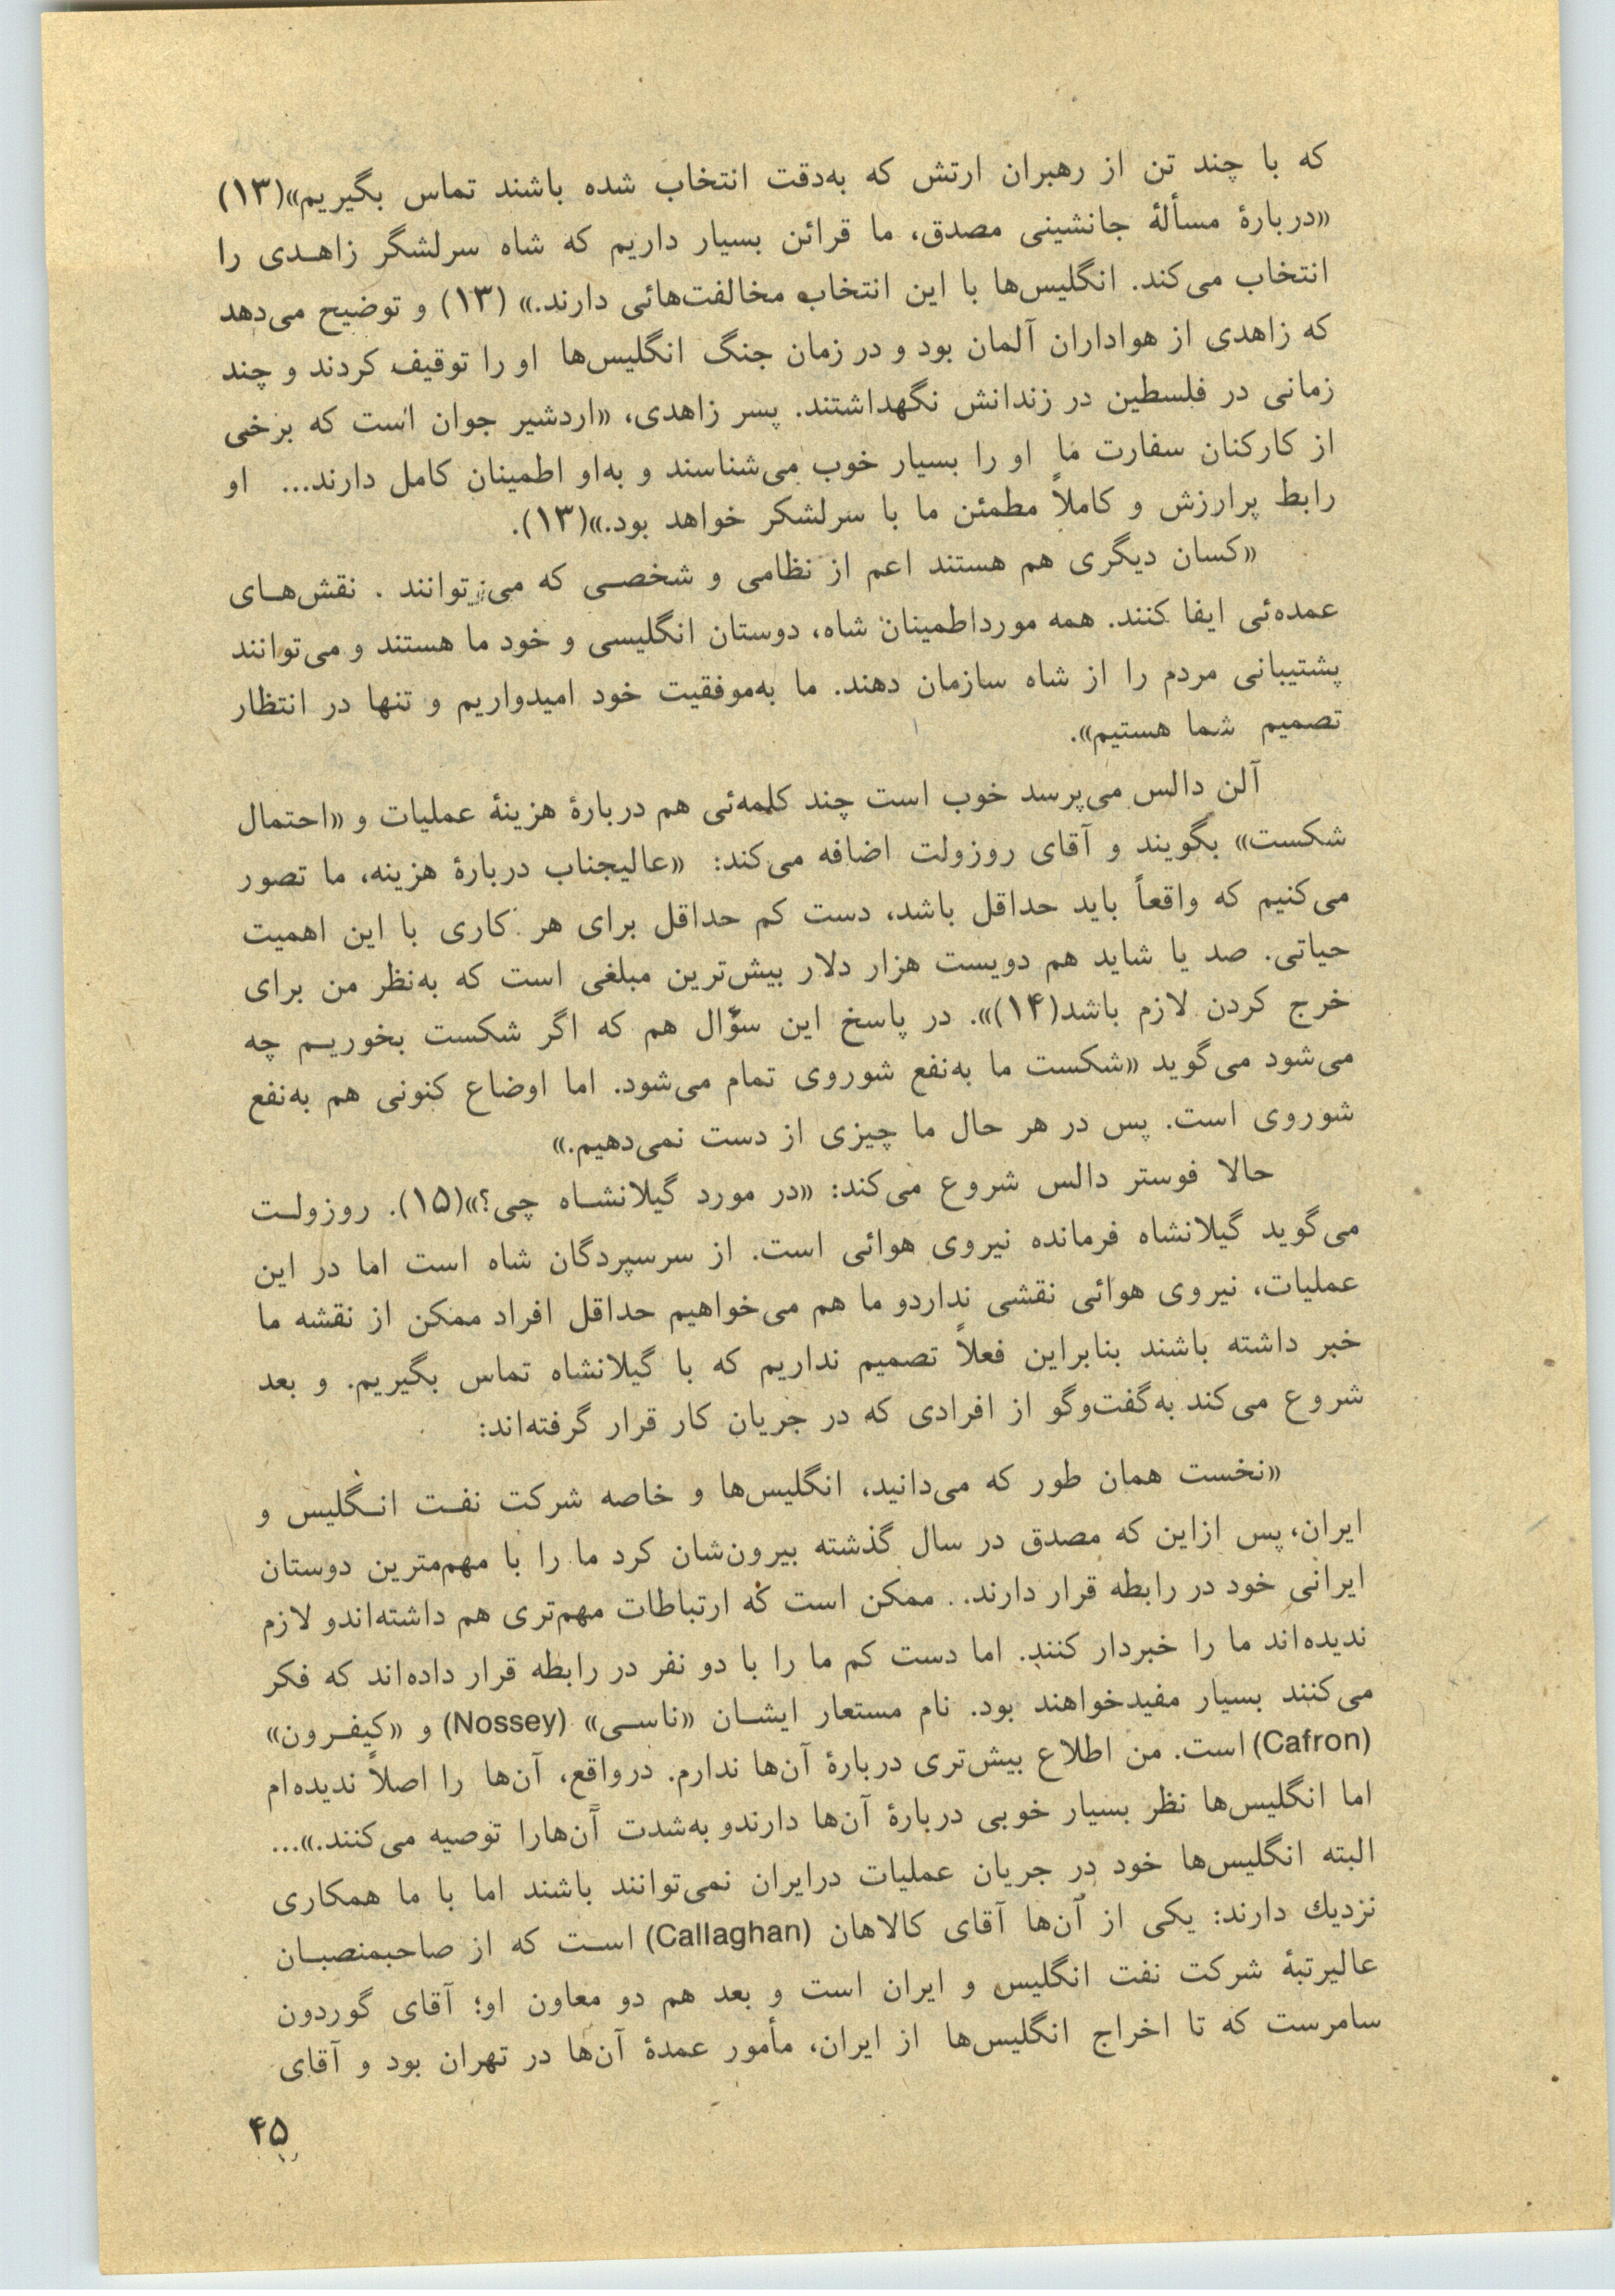 که با چند تن از رهبران ارتش که به‌دقت انتخاب شده باشند تماس بگیریم»(۱۳)
«دربارهٔ مسألهٔ جانشینی مصدق، ما قرائن بسیار داریم که شاه سرلشگر زاهدی را
انتخاب می‌کند. انگلیس‌ها با این انتخاب مخالفت‌هائی دارند.» (۱۳) و توضیح می‌دهد
که زاهدی از هواداران آلمان بود و در زمان جنگ انگلیس‌ها او را توقیف کردند و چند
زمانی در فلسطین در زندانش نگهداشتند. پسر زاهدی، «اردشیر جوان است که برخی
از کارکنان سفارت ما او را بسیار خوب می‌شناسند و به‌او اطمینان کامل دارند... او
رابط پرارزش و کاملاً مطمئن ما با سرلشکر خواهد بود.»(۱۳).
«کسان دیگری هم هستند اعم از نظامی و شخصی که می‌توانند . نقش‌های
عمده‌ئی ایفا کنند. همه مورداطمینان شاه، دوستان انگلیسی و خود ما هستند و می‌توانند
پشتیبانی مردم را از شاه سازمان دهند. ما به‌موفقیت خود امیدواریم و تنها در انتظار
تصمیم شما هستیم».
آلن دالس می‌پرسد خوب است چند کلمه‌ئی هم دربارهٔ هزینهٔ عملیات و «احتمال
شکست» بگویند و آقای روزولت اضافه می‌کند: «عالیجناب دربارهٔ هزینه، ما تصور
می‌کنیم که واقعاً باید حداقل باشد، دست کم حداقل برای هر کاری با این اهمیت
حیاتی. صد یا شاید هم دویست هزار دلار بیش‌ترین مبلغی است که به‌نظر من برای
خرج کردن لازم باشد(۱۴)». در پاسخ این سؤال هم که اگر شکست بخوریم چه
می‌شود می‌گوید «شکست ما به‌نفع شوروی تمام می‌شود. اما اوضاع کنونی هم به‌نفع
شوروی است. پس در هر حال ما چیزی از دست نمی‌دهیم.»
حالا فوستر دالس شروع می‌کند: «در مورد گیلانشاه چی؟»(۱۵). روزولت
می‌گوید گیلانشاه فرمانده نیروی هوائی است. از سرسپردگان شاه است اما در این
عملیات، نیروی هوائی نقشی نداردو ما هم می‌خواهیم حداقل افراد ممکن از نقشه ما
خبر داشته باشند بنابراین فعلاً تصمیم نداریم که با گیلانشاه تماس بگیریم. و بعد
شروع می‌کند به‌گفت‌وگو از افرادی که در جریان کار قرار گرفته‌اند:
«نخست همان طور که می‌دانید، انگلیس‌ها و خاصه شرکت نفت انگلیس و
ایران، پس ازاین که مصدق در سال گذشته بیرون‌شان کرد ما را با مهم‌مترین دوستان
ایرانی خود در رابطه قرار دارند. . ممکن است که ارتباطات مهم‌تری هم داشته‌اندو لازم
ندیده‌اند ما را خبردار کنند. اما دست کم ما را با دو نفر در رابطه قرار داده‌اند که فکر
می‌کنند بسیار مفیدخواهند بود. نام مستعار ایشان «ناسی» (Nossey) و «کیفرون»
(Cafron) است. من اطلاع بیش‌تری دربارهٔ آن‌ها ندارم. درواقع، آن‌ها را اصلاً ندیده‌ام
اما انگلیس‌ها نظر بسیار خوبی دربارهٔ آن‌ها دارندو به‌شدت آن‌هارا توصیه می‌کنند.»...
البته انگلیس‌ها خود در جریان عملیات درایران نمی‌توانند باشند اما با ما همکاری
نزدیك دارند: یکی از آن‌ها آقای کالاهان (Callaghan) است که از صاحبمنصبان
عالیرتبهٔ شرکت نفت انگلیس و ایران است و بعد هم دو معاون او؛ آقای گوردون
سامرست که تا اخراج انگلیس‌ها از ایران، مأمور عمدهٔ آن‌ها در تهران بود و آقای
۴۵